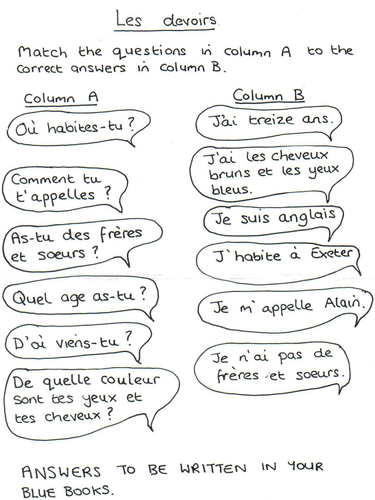 Les devoirs
Match the questions in column A to the
correct answers in column B.
Column A
Où habites-tu ?
Comment tu
t'appelles ?
As-tu des frères
et soeurs ?
Quel age as-tu ?
D'où viens-tu ?
De quelle couleur
sont tes yeux et
tes cheveux ?
Column B
J'ai treize ans.
J'ai les cheveux
bruns et les yeux
bleus.
Je suis anglais
J'habite à Exeter
Je m'appelle Alain.
Je n'ai pas de
frères et soeurs.
ANSWERS TO BE WRITTEN IN YOUR
BLUE BOOKS.